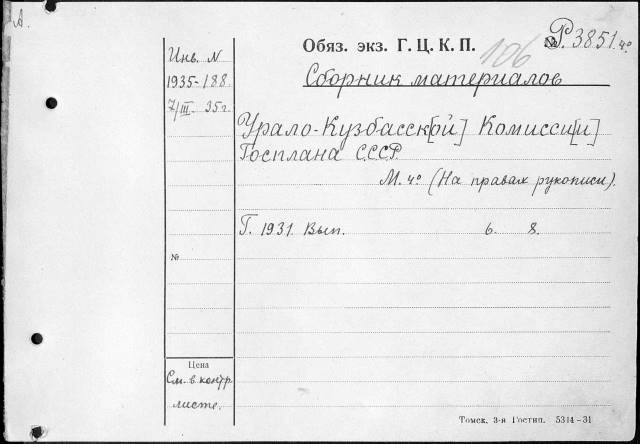 А.
Инв. N
1935-188
7/III-35г.
№
Цена
См. в контр
листе.
Обяз. экз. Г. Ц. К. П.
106
№ Р.3851.4о
Сборник материалов
Урало-Кузбасск[ой] Комисси[и]
Госплана СССР.
М. 4о (На правах рукописи).
Г. 1931. Вып. 6. 8.
Томск. 3-я Гостип. 5314-31